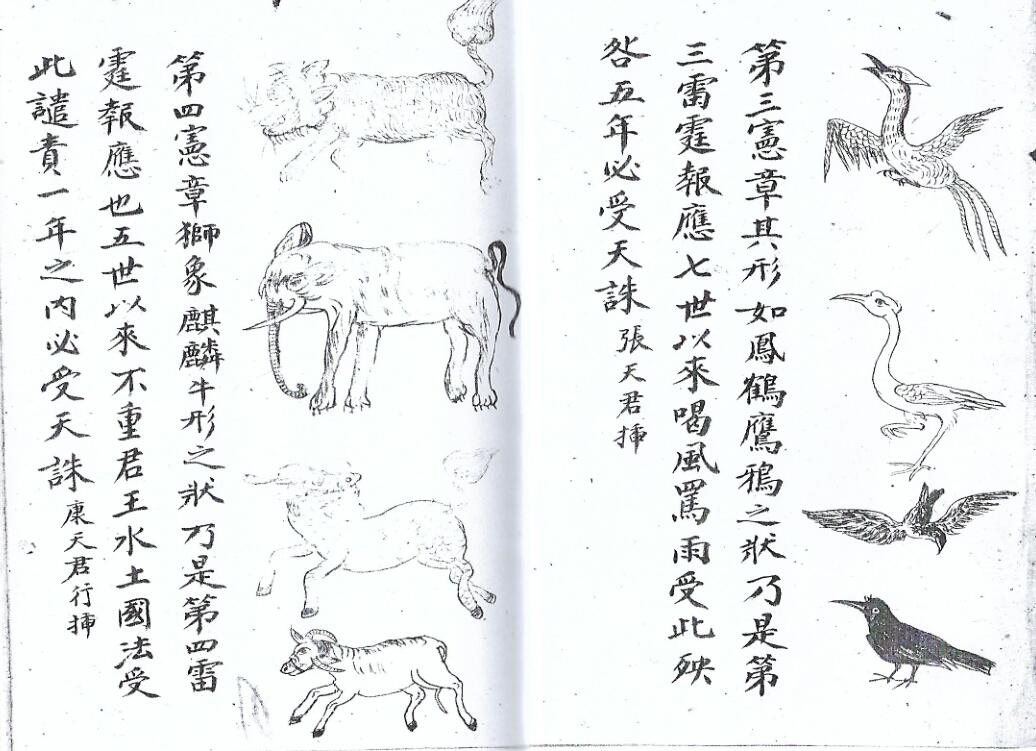 第三憲章其形如鳳鶴鷹鴉之狀乃是第
三雷霆報應七世以來喝風罵雨受此殃
咎五年必受天誅張天君挿
第四憲章獅象麒麟牛形之狀乃是第四雷
霆報應也五世以來不重君王水土國法受
此譴責一年之内必受天誅康天君行挿